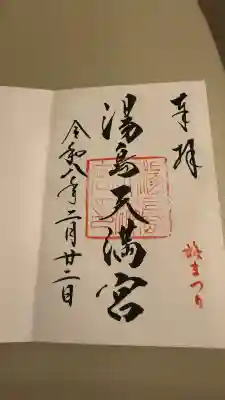 奉拝
湯島天満宮
令和八年二月廿二日
梅まつり